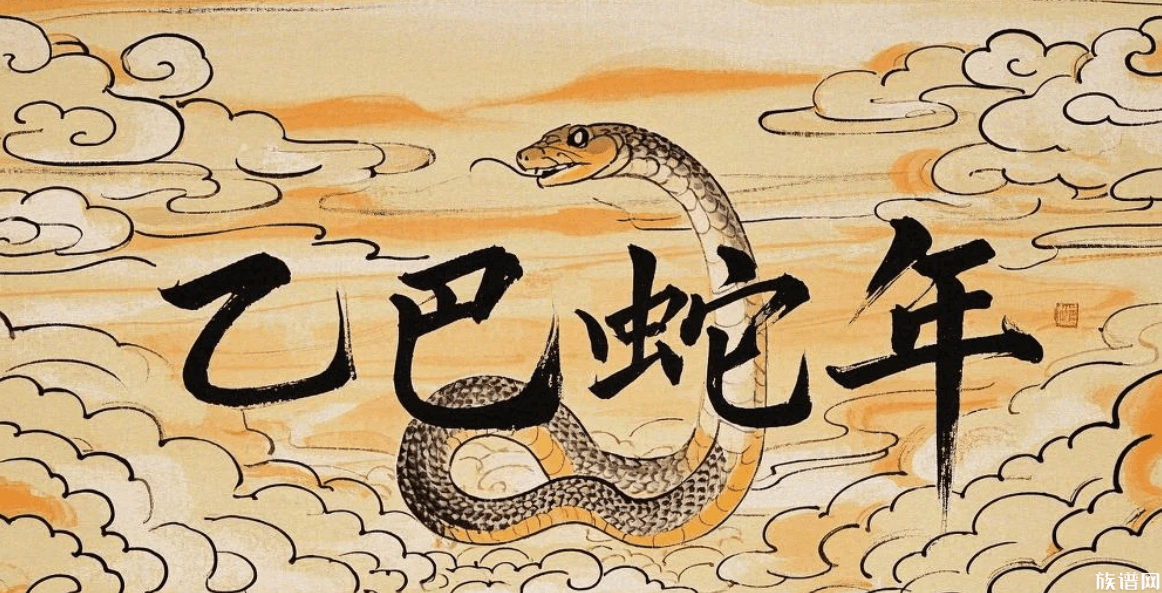 乙巴蛇年
族谱网